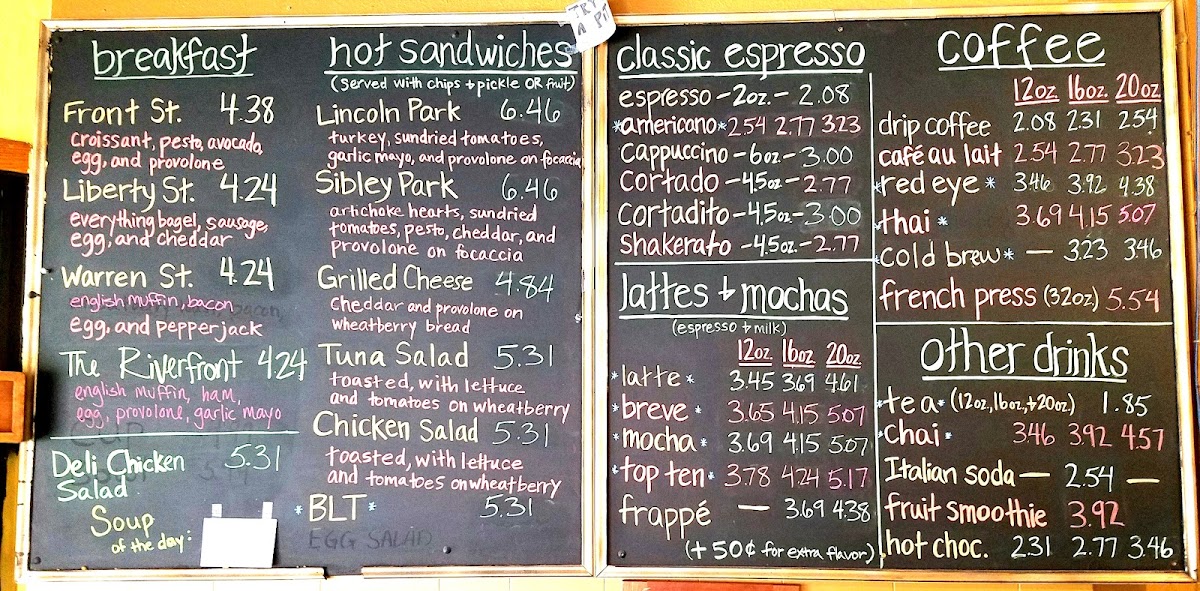 TRY
A PI
breakfast
Front St. 4.38
croissant, pesto, avocado,
egg, and provolone
Liberty St. 4.24
everything bagel, sausage,
egg, and cheddar
Warren St. 4.24
english muffin, bacon
egg, and pepperjack
The Riverfront 4.24
english muffin, ham,
egg, provolone, garlic mayo
Deli Chicken 5.31
Salad
Soup
of the day:
hot sandwiches
(Served with chips + pickle OR fruit)
Lincoln Park 6.46
turkey, sundried tomatoes,
garlic mayo, and provolone on focaccia
Sibley Park 6.46
artichoke hearts, sundried
tomatoes, pesto, cheddar, and
provolone on focaccia
Grilled Cheese 4.84
Cheddar and provolone on
wheatberry bread
Tuna Salad 5.31
toasted, with lettuce
and tomatoes on wheatberry
Chicken Salad 5.31
toasted, with lettuce
and tomatoes on wheatberry
*BLT* 5.31
EGG SALAD
classic espresso
espresso - 2oz. - 2.08
*americano* 2.54 2.77 3.23
cappuccino - 6oz - 3.00
cortado - 4.5oz - 2.77
cortadito - 4.5oz - 3.00
shakerato - 4.5oz - 2.77
lattes + mochas
(espresso + milk)
12oz 16oz 20oz
*latte* 3.45 3.69 4.61
*breve* 3.65 4.15 5.07
*mocha* 3.69 4.15 5.07
*top ten* 3.78 4.24 5.17
frappé — 3.69 4.38
(+ 50¢ for extra flavor)
coffee
12oz 16oz 20oz
drip coffee 2.08 2.31 2.54
café au lait 2.54 2.77 3.23
*red eye* 3.46 3.92 4.38
thai* 3.69 4.15 5.07
*cold brew* — 3.23 3.46
french press (32oz) 5.54
other drinks
*tea* (12oz, 16oz, + 20oz.) 1.85
*chai* 3.46 3.92 4.57
Italian soda — 2.54 —
fruit smoothie 3.92
hot choc. 2.31 2.77 3.46